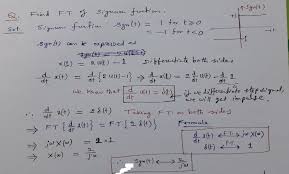 Q. Find FT of Signum function.
Sol. Signum function Sgn(t) = 1 for t>0
= -1 for t<0
Sgn(t)
Sgn(t) can be expressed as
x(t) = 2u(t) - 1 Differentiate both sides
d/dt x(t) = d/dt [2u(t) - 1] ⇒ d/dt x(t) = 2 d/dt u(t) - d/dt 1
We know that d/dt u(t) = δ(t) if we differentiate step signal, we will get impulse.
d/dt x(t) = 2 δ(t) Taking FT on both sides
⇒ FT{d/dt x(t)} = FT{2 δ(t)} Formula
⇒ jω X(ω) = 2·1 d/dt x(t) ←FT→ jω X(ω)
⇒ X(ω) = 2/jω δ(t) ←FT→ 1
∴ Sgn(t) ↔ 2/jω